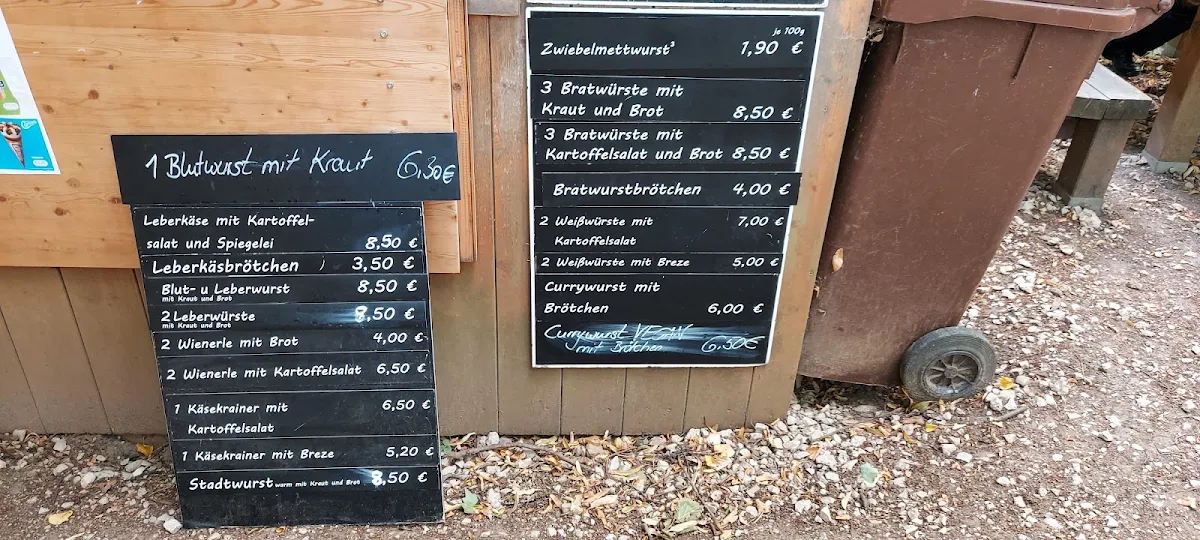 1 Blutwurst mit Kraut 6,30€
Leberkäse mit Kartoffel-
salat und Spiegelei 8,50 €
Leberkäsbrötchen 3,50 €
Blut- u Leberwurst 8,50 €
mit Kraut und Brot
2 Leberwürste 8,50 €
mit Kraut und Brot
2 Wienerle mit Brot 4,00 €
2 Wienerle mit Kartoffelsalat 6,50 €
1 Käsekrainer mit 6,50 €
Kartoffelsalat
1 Käsekrainer mit Breze 5,20 €
Stadtwurst warm mit Kraut und Brot 8,50 €
je 100g
Zwiebelmettwurst³ 1,90 €
3 Bratwürste mit
Kraut und Brot 8,50 €
3 Bratwürste mit
Kartoffelsalat und Brot 8,50 €
Bratwurstbrötchen 4,00 €
2 Weißwürste mit 7,00 €
Kartoffelsalat
2 Weißwürste mit Breze 5,00 €
Currywurst mit
Brötchen 6,00 €
Currywurst VEGAN
mit Brötchen 6,50€